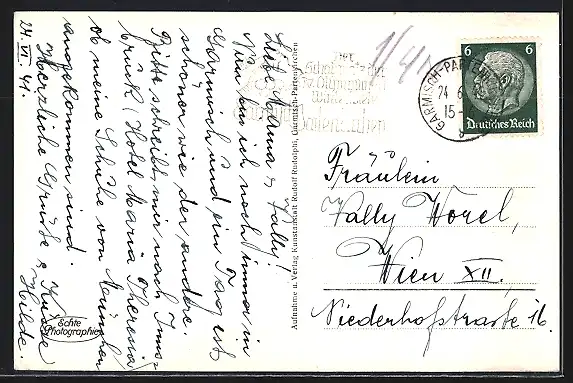 24. VI. 41.
Liebe Mama & Vally!
Nun bin ich noch immer in
Garmisch und ein Tag ist
schöner wie der andere.
Bitte schreibt mir nach Inns-
bruck (Hotel Maria Theresia)
ob meine Schuhe von München
angekommen sind.
Herzliche Grüße & Küsse
Hilde.
Echte
Photographie
Aufnahme u. Verlag Kunstanstalt Rudolf Rudolphi, Garmisch-Partenkirchen
GARMISCH-PARTENK
24. 6.
15-
6 6
Deutsches Reich
Fräulein
Vally Horel,
Wien XII.
Niederhofstrasse 16.